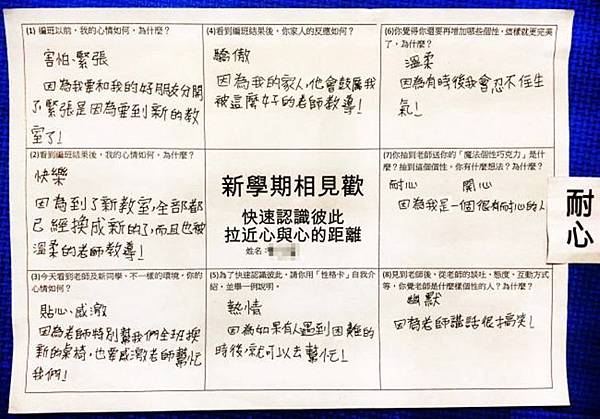 (1) 編班以前，我的心情如何，為什麼？
害怕、緊張
因為我要和我的好朋友分開
了，緊張是因為要到新的教
室了！
(2)看到編班結果後，我的心情如何，為什麼？
快樂
因為到了新教室，全部都
已經換成新的了，而且也被
溫柔的老師教導！
(3)今天看到老師及新同學、不一樣的環境，你的
心情如何？
貼心、感激
因為老師特別幫我們全班換
新的桌椅，也要感激老師幫忙
我們！
(4)看到編班結果後，你家人的反應如何？
驕傲
因為我的家人，他會鼓勵我
被這麼好的老師教導！
新學期相見歡
快速認識彼此
拉近心與心的距離
姓名：
(5)為了快速認識彼此，請你用「性格卡」自我介
紹，並舉一例說明。
熱情
因為如果有人遇到困難的
時後，就可以去幫忙！
(6)你覺得你還要再增加哪些個性，這樣就更完美
了，為什麼？
溫柔
因為有時後我會忍不住生
氣！
(7)你抽到老師送你的「魔法個性巧克力」是什
麼？抽到這個個性，你有什麼想法？為什麼？
耐心 開心
因為我是一個很有耐心的人
耐心
(8)見到老師後，從老師的談吐、態度、互動方式
等，你覺老師是什麼樣個性的人？為什麼？
幽默
因為老師講話很搞笑！